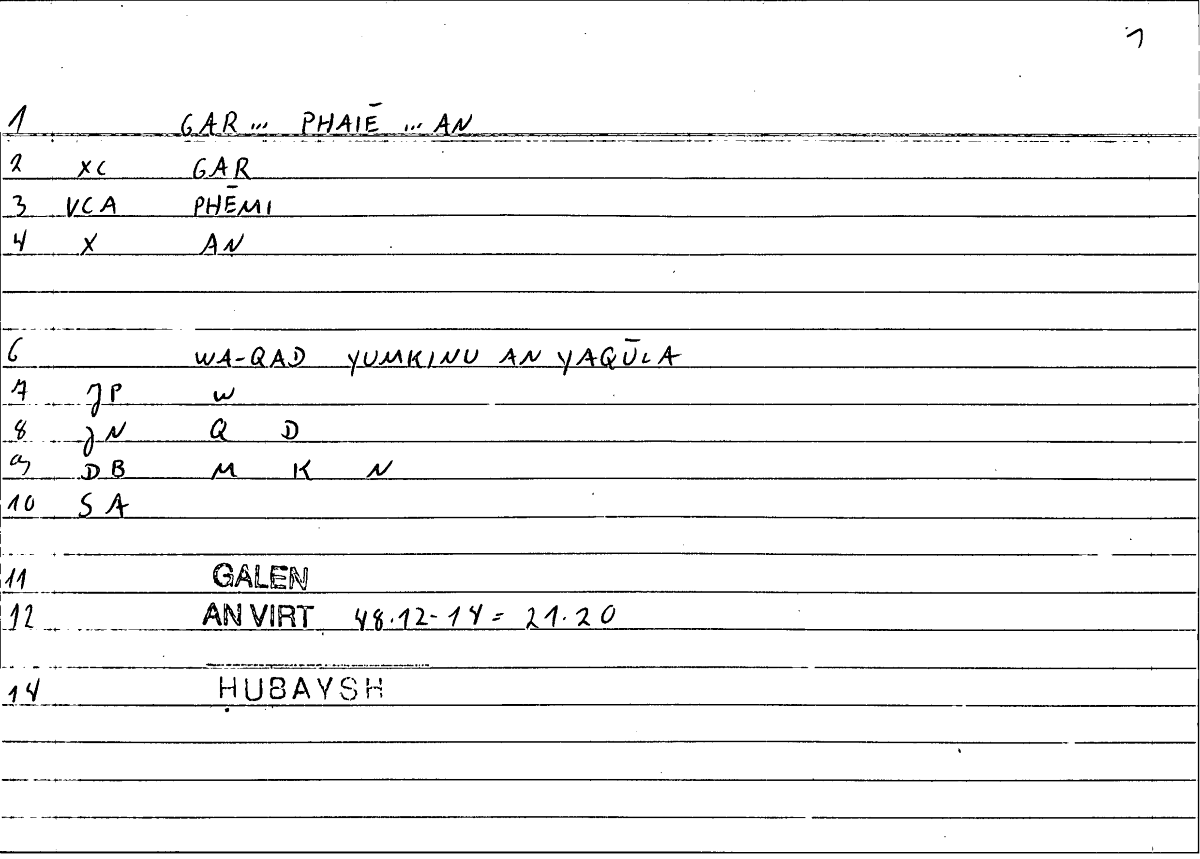 1
1 GAR ... PHAIĒ ... AN
2 XC GAR
3 VCA PHĒMI
4 X AN
6 WA-QAD YUMKINU AN YAQŪLA
7 JP W
8 JN Q D
9 DB M K N
10 SA
11 GALEN
12 AN VIRT 48.12-14 = 21.20
14 ḤUBAYSH